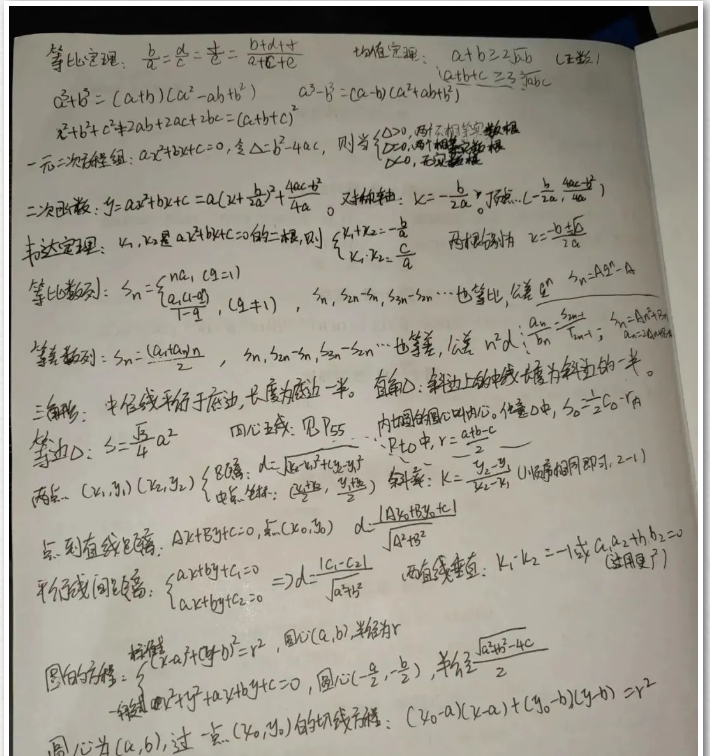 等比定理: b/a = d/c = f/e = (b+d+f)/(a+c+e) 均值定理: a+b≥2√ab (正数)
a+b+c≥3∛abc
a³+b³=(a+b)(a²-ab+b²) a³-b³=(a-b)(a²+ab+b²)
a²+b²+c²+2ab+2ac+2bc=(a+b+c)²
一元二次方程组: ax²+bx+c=0, 令△=b²-4ac, 则当{△>0, 两个不相等实数根
两个相等实数根
△<0, 无实数根
二次函数: y=ax²+bx+c=a(x+b/2a)²+(4ac-b²)/4a 。对称轴: x=-b/2a 。顶点..(-b/2a, (4ac-b²)/4a)
韦达定理: x₁,x₂是ax²+bx+c=0的二根,则{x₁+x₂=-b/a
x₁·x₂=c/a 两根分别为 x=
等比数列: Sn={na₁ (q=1)
a₁(1-qⁿ)/(1-q), (q≠1) , Sn, S2n-Sn, S3n-S2n…也等比, 公差qⁿ Sn=Aqⁿ-A
等差数列: Sn=(a₁+an)n/2 , Sn, S2n-Sn, S3n-S2n…也等差, 公差 n²d; an/bn=S2n-1/T2n-1;
三角形: 中位线平行于底边,长度为底边一半。直角△:斜边上的中线长度为斜边的一半。
等边△: S=√3/4 a² 四心五线: 见P55 内切圆的圆心叫内心。任意△中, S△=½C△·r
Rt△中, r=(a+b-c)/2
两点.. (x₁,y₁)(x₂,y₂){距离: d=√(x₁-x₂)²+(y₁-y₂)²
中点坐标: ((x₁+x₂)/2, (y₁+y₂)/2) 斜率: k=(y₂-y₁)/(x₂-x₁) (顺序相同即可, 2-1)
点到直线距离: Ax+By+C=0, 点(x₀,y₀) d=|Ax₀+By₀+C|/√A²+B²
平行线间距离: {ax+by+c₁=0
ax+by+c₂=0 => d=|c₁-c₂|/√a²+b² 两直线垂直: k₁·k₂=-1或a₁a₂+b₁b₂=0
(适用更广)
圆的方程: {标准型 (x-a)²+(y-b)²=r², 圆心(a,b),半径为r
一般型 x²+y²+ax+by+c=0, 圆心(-a/2,-b/2), 半径√a²+b²-4c/2
圆心为(a,b),过一点(x₀,y₀)的切线方程: (x₀-a)(x-a)+(y₀-b)(y-b)=r²